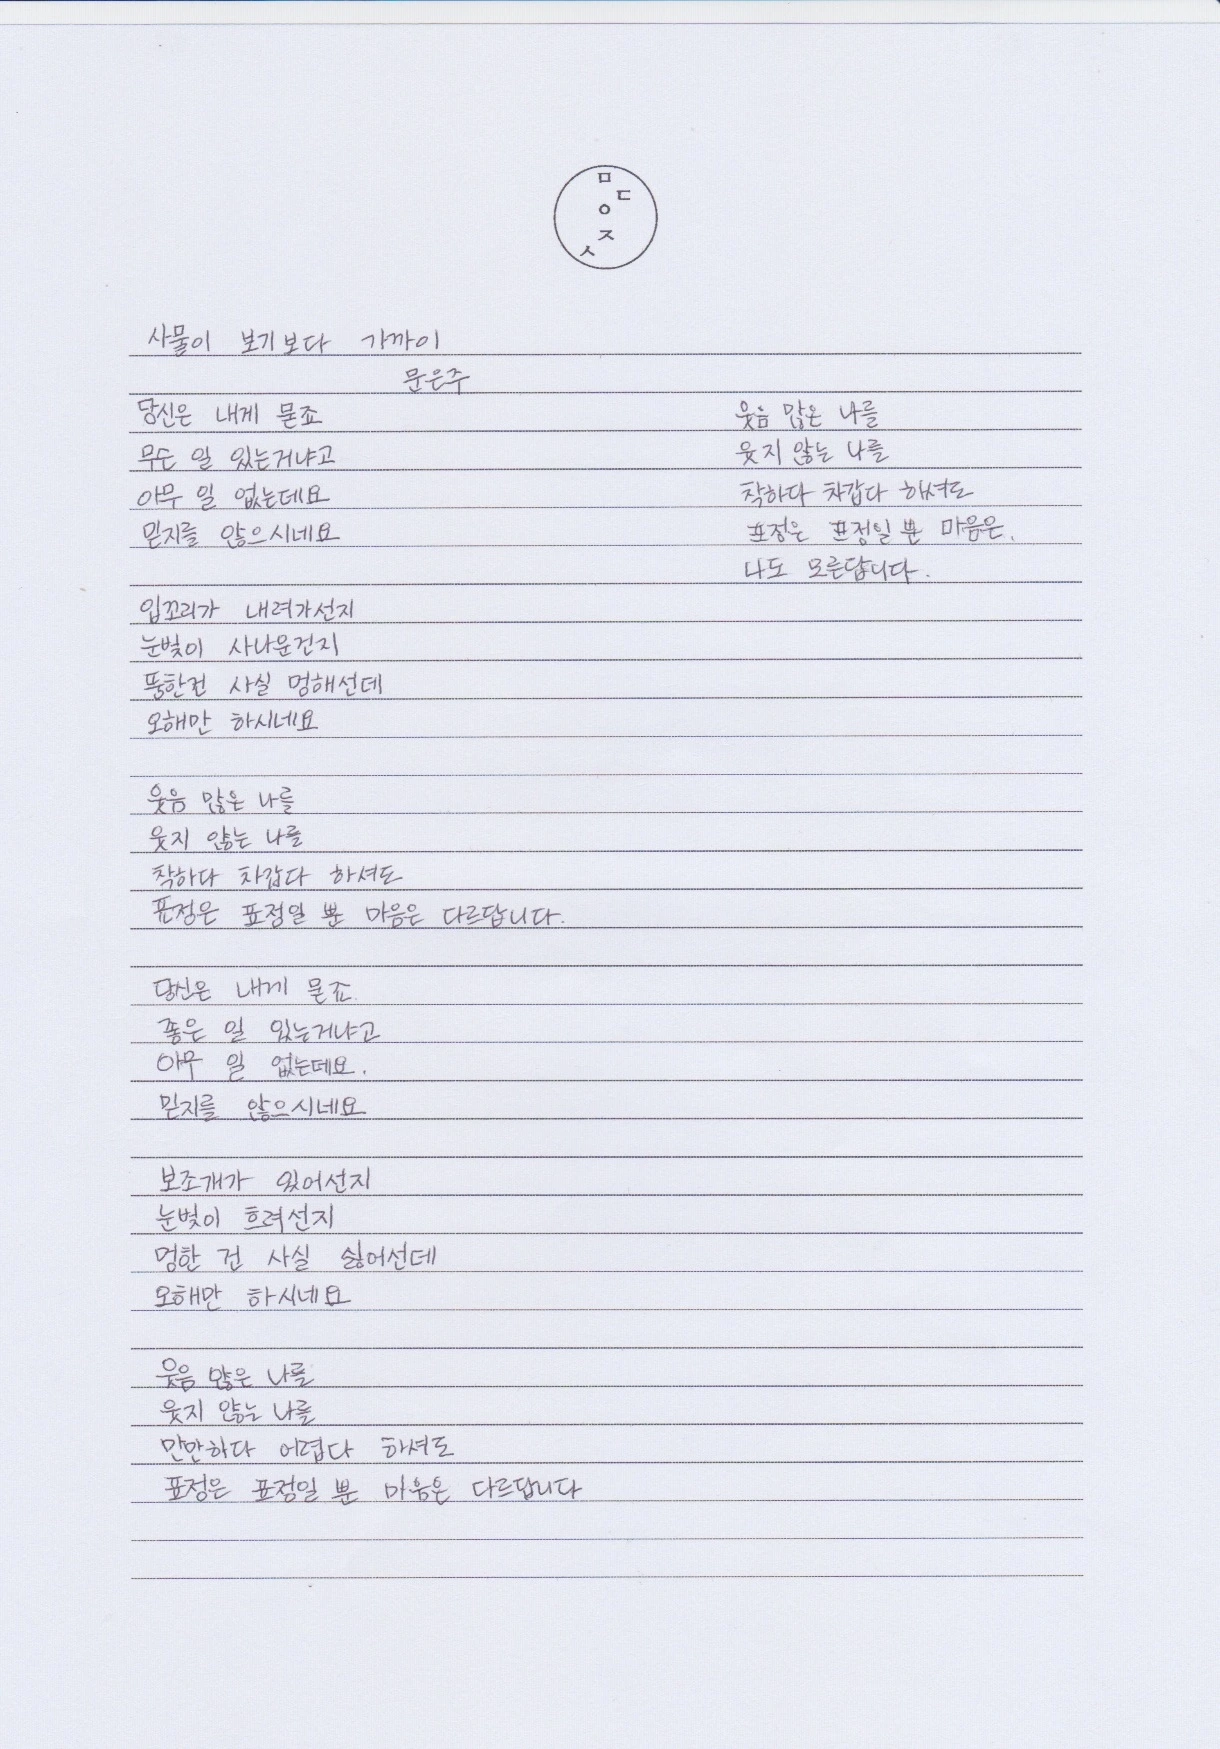 ㅁ
ㄷ
ㅇ
ㅈ
ㅅ
사물이 보기보다 가까이
문은주
당신은 내게 묻죠
무슨 일 있는거냐고
아무 일 없는데요
믿지를 않으시네요
입꼬리가 내려가선지
눈빛이 사나운건지
뚱한건 사실 멍해선데
오해만 하시네요
웃음 많은 나를
웃지 않는 나를
착하다 차갑다 하셔도
표정은 표정일 뿐 마음은 다르답니다.
당신은 내게 묻죠
좋은 일 있는거냐고
아무 일 없는데요.
믿지를 않으시네요
보조개가 있어선지
눈빛이 흐려선지
멍한 건 사실 싫어선데
오해만 하시네요
웃음 많은 나를
웃지 않는 나를
만만하다 어렵다 하셔도
표정은 표정일 뿐 마음은 다르답니다
웃음 많은 나를
웃지 않는 나를
착하다 차갑다 하셔도
표정은 표정일 뿐 마음은.
나도 모른답니다.